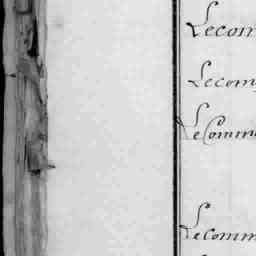 Le com
Le com
Le Comm
Le comm